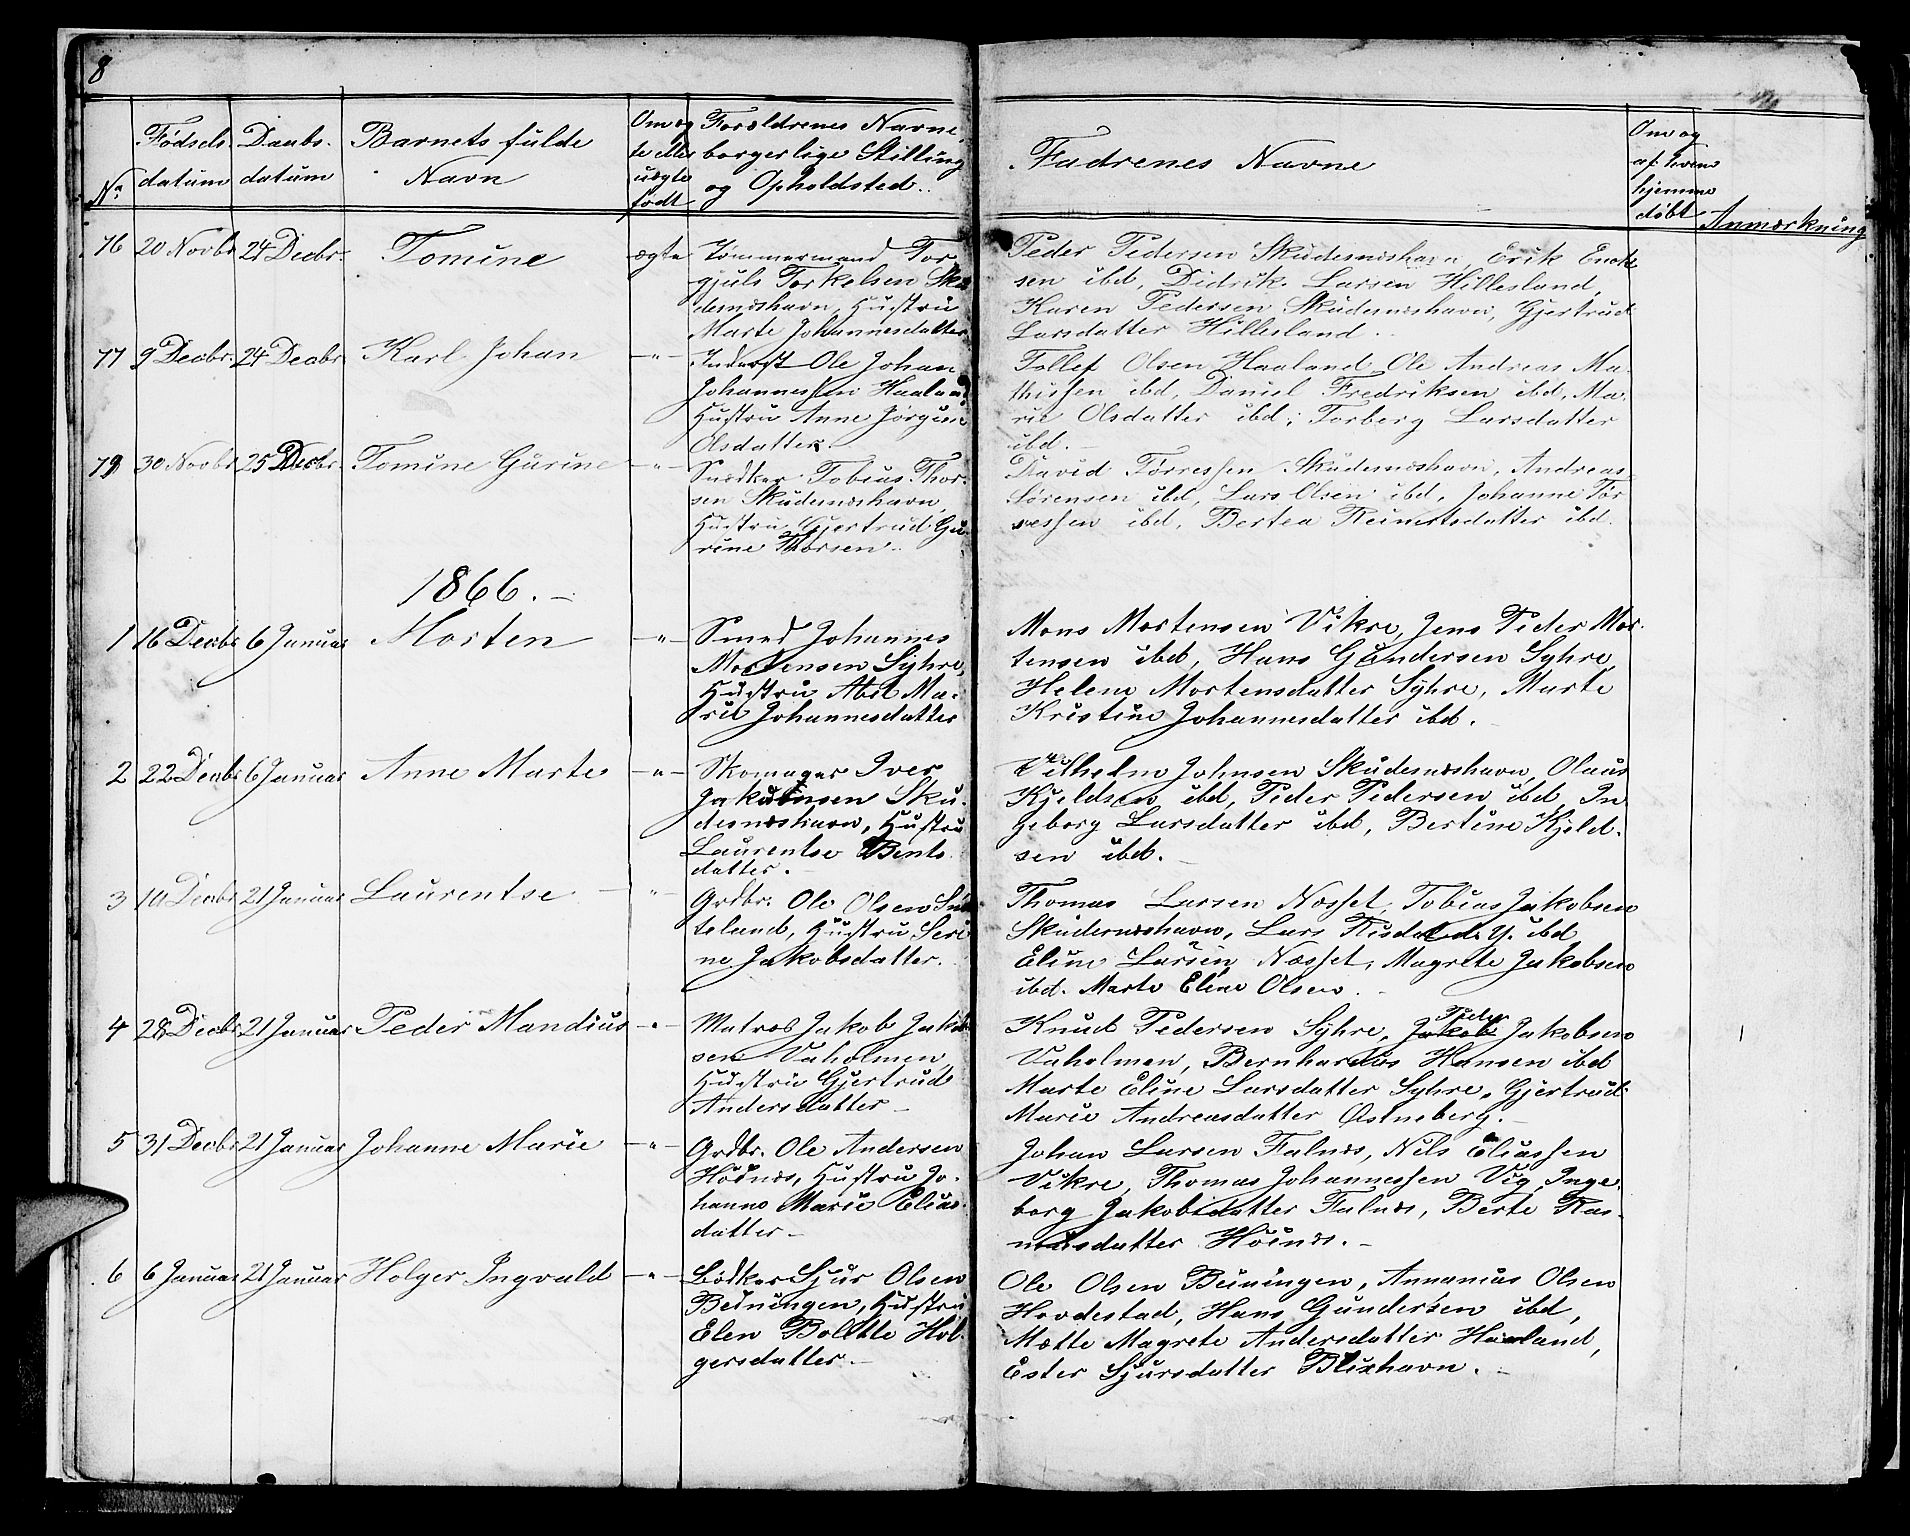 8
No
Fødsels
datum
Daabs.
datum
Barnets fulde
Navn
Om æg
te eller
uægte
født
Forældrenes Navne
borgerlige Stilling
og Opholdsted..
Fadrenes Navne
Om og
af hvem
hjemme
døbt
Anmærkning
76 20 Novbr 24 Decbr. Tomine ægte
Tømmermand Tor
gjuls Torkelsen Sku
desneshavn, Hustru
Marte Johannesdatter
Peder Pedersen Skudesneshavn, Erik Erick
sen ibd, Didrik Larsen Hillesland,
Karen Pedersen Skudesneshavn, Gjertrud
Larsdatter Hillesland.
77 9 Decbr. 24 Decbr. Karl Johan -"-
Inderst Ole Johan
Johannessen Haaland
Hustru Anne Jørgine
Olsdatter.
Tollef Olsen Haaland, Ole Andreas Ma
thissen ibd, Daniel Fredriksen ibd, Ma-
rie Olsdatter ibd; Torberg Larsdatter
ibd.-
79 30 Novbr 25 Decbr. Tomine Gurine -"-
Snedker Tobias Thor-
sen Skudesneshavn,
Hustru Gjertrud Gu-
rine Thorsen..
David Tørressen Skudesneshavn, Andreas
Sørensen ibd, Lars Olsen ibd, Johanne Tør
ressen ibd, Bertea Reinertsdatter ibd.
1866.-
1 16 Decbr 6 Januar Morten -"-
Smed Johannes
Mortensen Syhre,
Hustru Abel Ma-
rie Johannesdatter
Mons Mortensen Vikre, Jens Peder Mor-
tensen ibd, Hans Gundersen Syhre,
Helene Mortensdatter Syhre, Marte
Kristine Johannesdatter ibd.-
2 22 Decbr 6 Januar Anne Marte -"-
Skomager Iver
Jakobsen Sku-
desneshavn, Hustru
Laurentse Bents
datter.-
Vilhelm Johnsen Skudesneshavn, Olaus
Kjeldsen ibd, Peder Pedersen ibd, In
geborg Larsdatter ibd, Bertine Kjeld-
sen ibd.-
3 10 Decbr 21 Januar Laurentse -"-
Grdbr. Ole Olsen
teland, Hustru Seri
ne Jakobsdatter.
Thomas Larsen Næsset, Tobias Jakobsen
Skudesneshavn, Lars Risdal d.y. ibd
Eline Larsen Næsset, Magrete Jakobsen
ibd. Marte Eline Olsen.-
4 28 Decbr 21 Januar Peder Mandius -"-
Matros Jakob Jakob
sen Vaholmen,
Hustru Gjertrud
Andersdatter-
Peder
Knud Pedersen Syhre, Jakob Jakobsen
Vaholmen, Bernhardus Hansen ibd
Marte Eline Larsdatter Syhre, Gjertrud
Marie Andreasdatter Østneberg.-
5 31 Decbr 21 Januar Johanne Marie -"-
Grdbr. Ole Andersen
Høines, Hustru Jo-
hanne Marie Elias-
datter-
Johan Larsen Falnes, Nils Eliassen
Vikre, Thomas Johannessen Vig, Inge
borg Jakobsdatter Falnes, Berte Ras-
musdatter Høines.-
6 6 Januar 21 Januar Holger Ingvald -"-
Bødker Sjur Olsen
Beiningen, Hustru
Elen Bolette Hol-
gersdatter-
Ole Olsen Beiningen, Annanias Olsen
Hovdestad, Hans Gundersen ibd,
Mætte Magrete Andersdatter Haaland,
Ester Sjursdatter Blixhavn.-